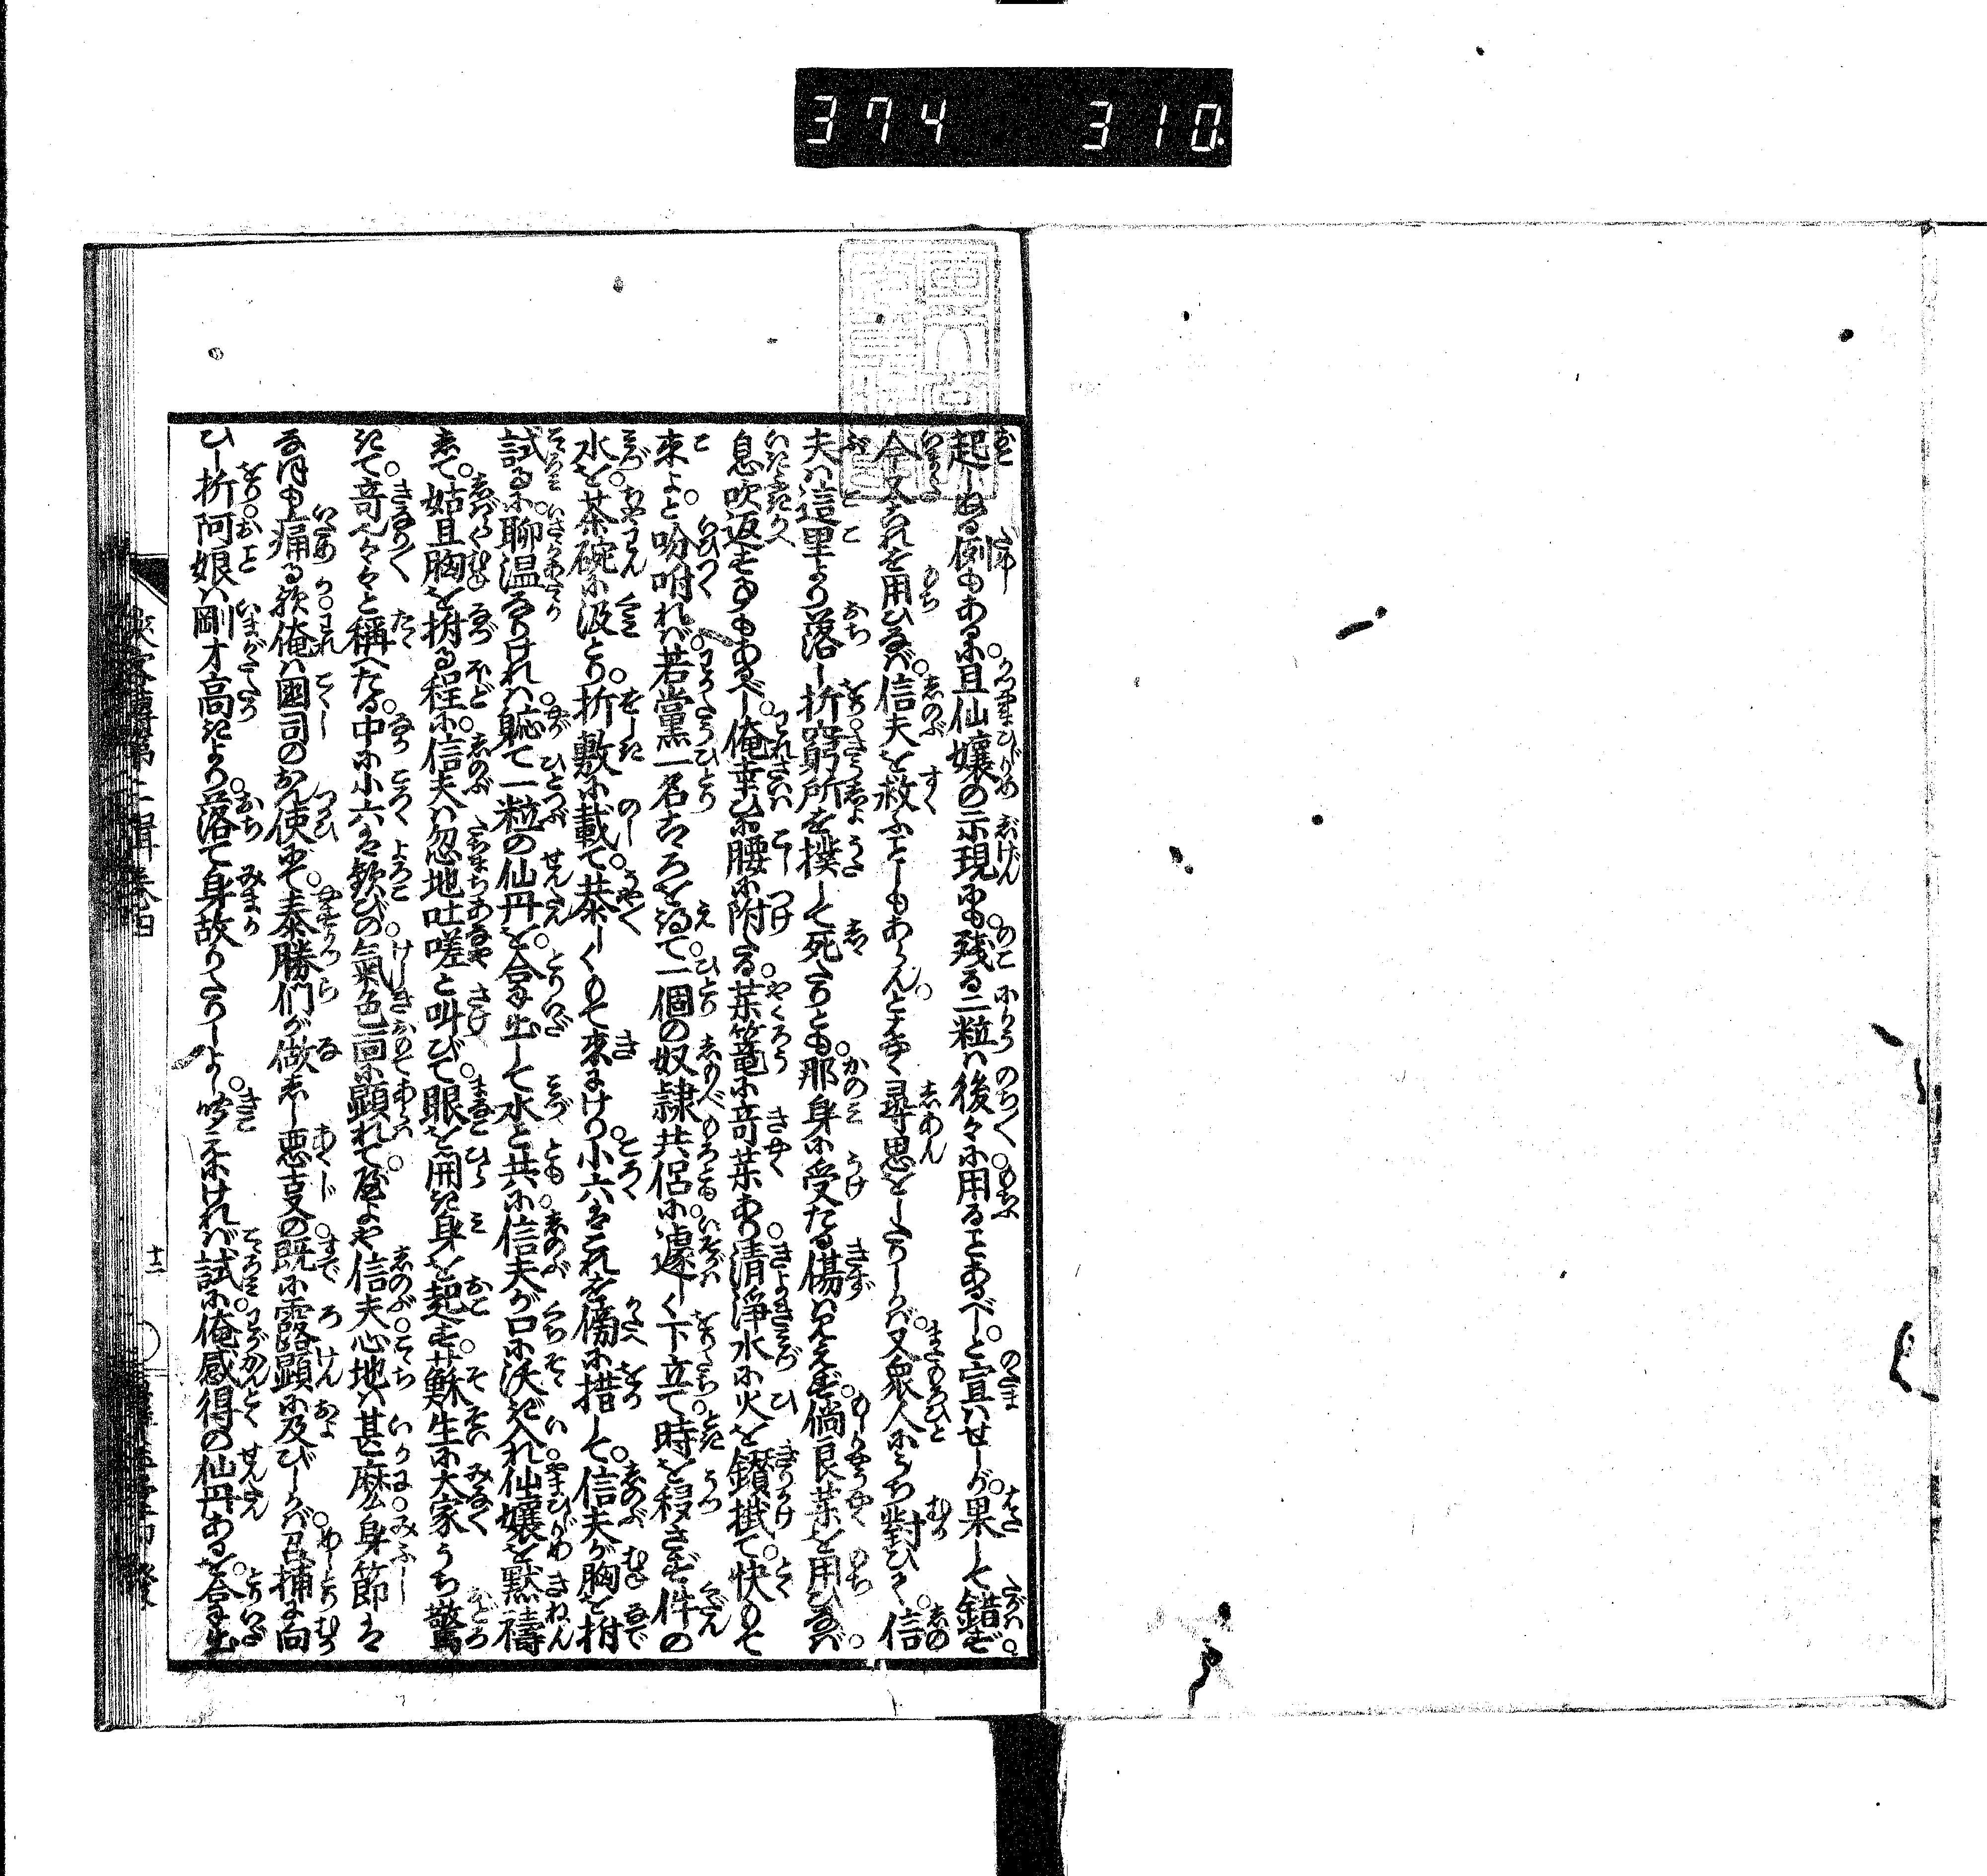 374 310
起しぬる例もあるに且仙孃の示現にも殘る二粒は後々に用ることあるべしと宣はせしが果して錯ず
今又これを用ひなば信夫を救ふよしもあらんとよく尋思をしたりしかば又衆人にうち對ひて信
夫は這里より落し折窮所を撲して死たりとも那身に受たる傷は見えず倘良藥を用ひなば
息吹返すよしもあるべし俺幸ひに腰に附たる藥篭に奇藥あり清淨水に火を鑚掛て快もて
來よと吩咐れば若黨一名こころを得て一個の奴隷共侶に遽しく下立て時を移さず件の
水を茶碗に汲とり折敷に載て恭しくもて來にけり小六はこれを傍に措して信夫が胸を拊
試るに聊温なりければ軈て一粒の仙丹を合出して水と共に信夫が口に沃ぎ入れ仙孃を黙禱
して姑且胸を拊る程に信夫は忽地吐嗟と叫びて眼を開き身を起す蘇生に大家うち驚
きて奇々々々と稱へたる中に小六は歡びの氣色面に顕れてやよや信夫心地は甚麽身節は
なほ痛る歟俺は國司のおん使にて泰勝們が做しし悪事の既に露顕に及びしかば召捕に向
ひし折阿娘は剛才高きより落て身故りたりしよし聞えにければ試に俺感得の仙丹あるを合出
十二